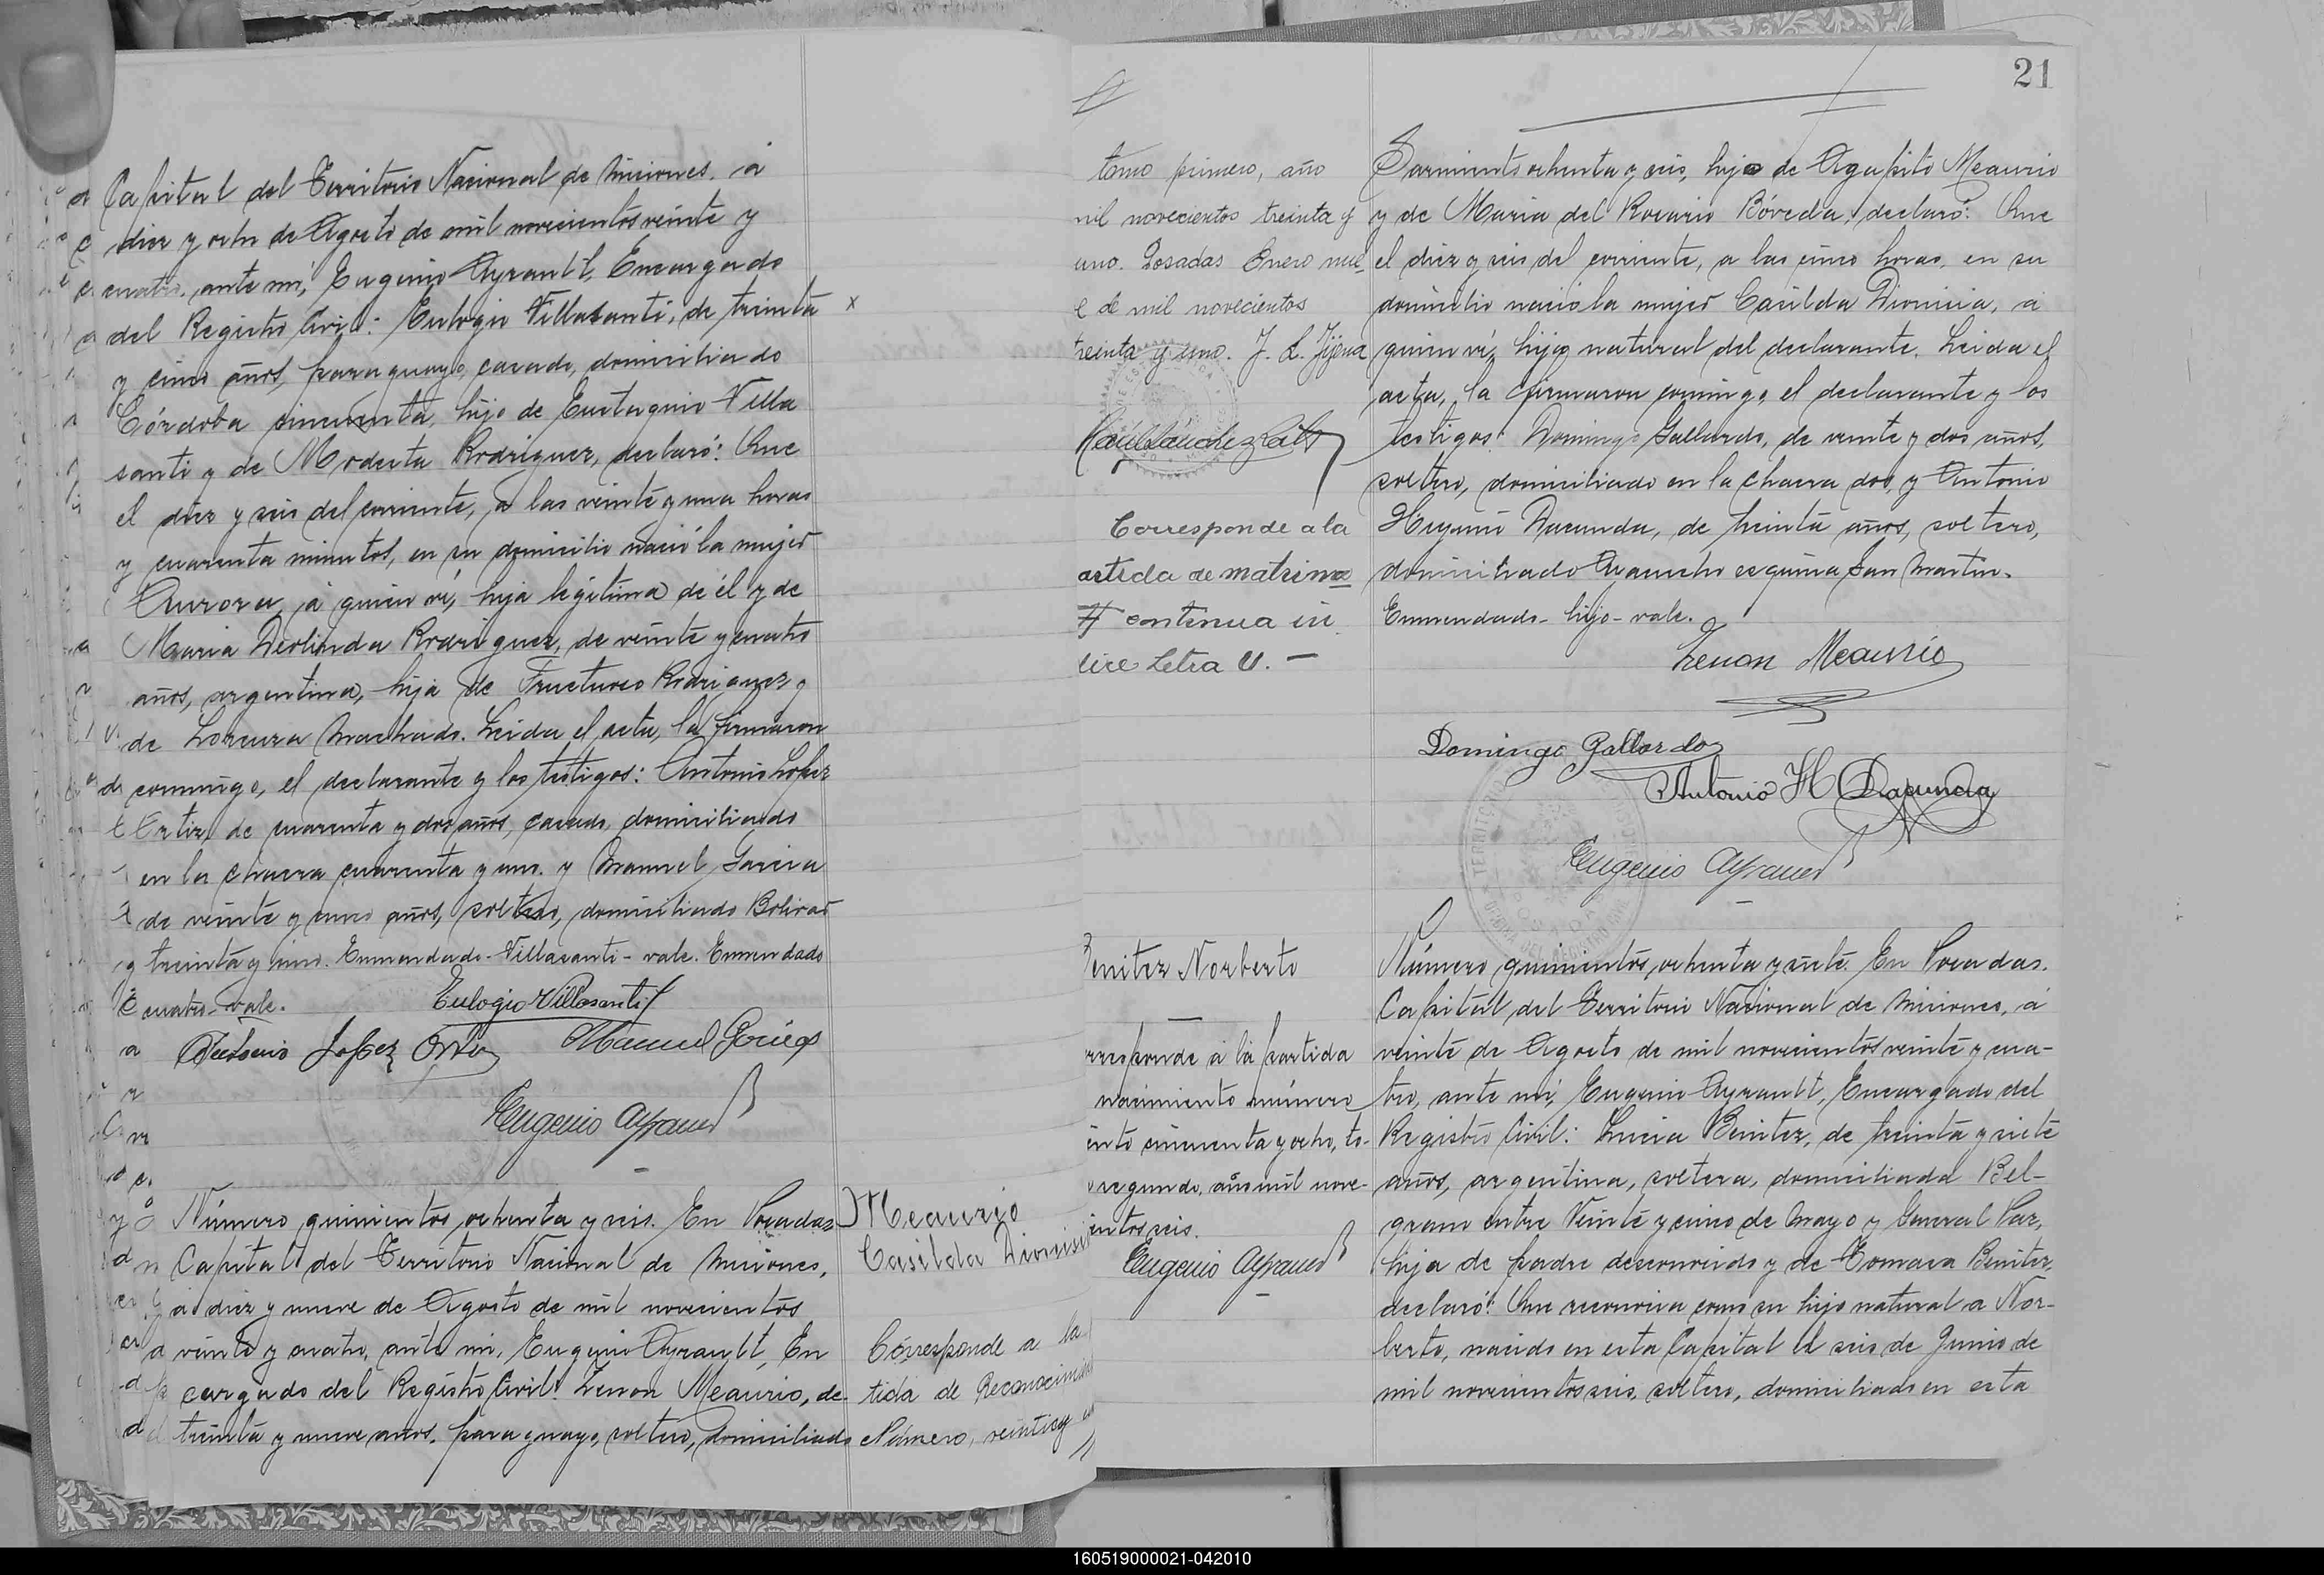 Capital del Territorio Nacional de Misiones, á
diez y ocho de Agosto de mil novecientos veinte y
cuatro, ante mi, Eugenio Ayrault, Encargado
del Registro Civil: Eulogio Villasanti, de treinta x
y cinco años, paraguayo, casado, domiciliado
Córdoba cincuenta, hijo de Eustaquio Villa
santi y de Modesta Rodriguez, declaró: Que
el diez y seis del corriente, á las veinte y una horas
y cuarenta minutos, en su domicilio nació la mujer
Aurora, á quien ví, hija legítima de él y de
Maria Deolinda Rodriguez, de veinte y cuatro
años, argentina, hija de Fructuoso Rodriguez y
de Lorenza Machado. Leida el acta, la firmaron
conmigo, el declarante y los testigos: Antonio Lopez
Ortiz, de cuarenta y dos años, casado, domiciliado
en la chacra cuarenta y una y Manuel Garcia
de veinte y cinco años, soltero, domiciliado Bolivar
treinta y cinco. Enmendado - Villasanti - vale. Enmendado
cuatro - vale.
Eulogio Villasanti
Antonio Lopez Ortiz Manuel Garcia
Eugenio Ayrault
Número quinientos ochenta y seis. En Posadas
Capital del Territorio Nacional de Misiones,
á diez y nueve de Agosto de mil novecientos
veinte y cuatro, ante mi, Eugenio Ayrault, En
cargado del Registro Civil: Zenon Meaurio, de
treinta y nueve años, paraguayo, soltero, domiciliado
Meaurio
Casilda Dionisi
Corresponde a la
tida de Reconocimien
Número, veinticy
21
tomo primero, año
mil novecientos treinta y
uno. Posadas Enero nue
e de mil novecientos
treinta y uno. J. L. Jijena
Corresponde a la
artida de matrimo
# continua in
dice Letra V. —
Sarmiento ochenta y seis, hijo de Agapito Meaurio
y de Maria del Rosario Bóveda, declaró: Que
el diez y seis del corriente, a las cinco horas, en su
domicilio nació la mujer Casilda Dionisia, á
quien ví, hija natural del declarante. Leida el
acta, la firmaron conmigo, el declarante y los
testigos: Domingo Gallardo, de veinte y dos años,
soltero, domiciliado en la chacra dos, y Antonio
Higinio Dacunda, de treinta años, soltero,
domiciliado Ayacucho esquina San Martin.
Enmendado - hijo - vale.
Zenon Meaurio
Domingo Gallardo
Antonio H Dacunda
Eugenio Ayrault
Benitez Norberto
rresponde á la partida
nacimiento número
ento cincuenta y ocho, to-
segundo, año mil nove-
ientos seis.
Eugenio Ayrault
Número quinientos ochenta y siete. En Posadas.
Capital del Territorio Nacional de Misiones, á
veinte de Agosto de mil novecientos veinte y cua-
tro, ante mi, Eugenio Ayrault, Encargado del
Registro Civil: Lucia Benitez, de treinta y siete
años, argentina, soltera, domiciliada Bel-
grano entre Veinte y cinco de Mayo y General Paz,
hija de padre desconocido y de Tomasa Benitez,
declaró: Que reconocia como su hijo natural a Nor-
berto, nacido en esta Capital el seis de Junio de
mil novecientos seis, soltero, domiciliado en esta
160519000021-042010